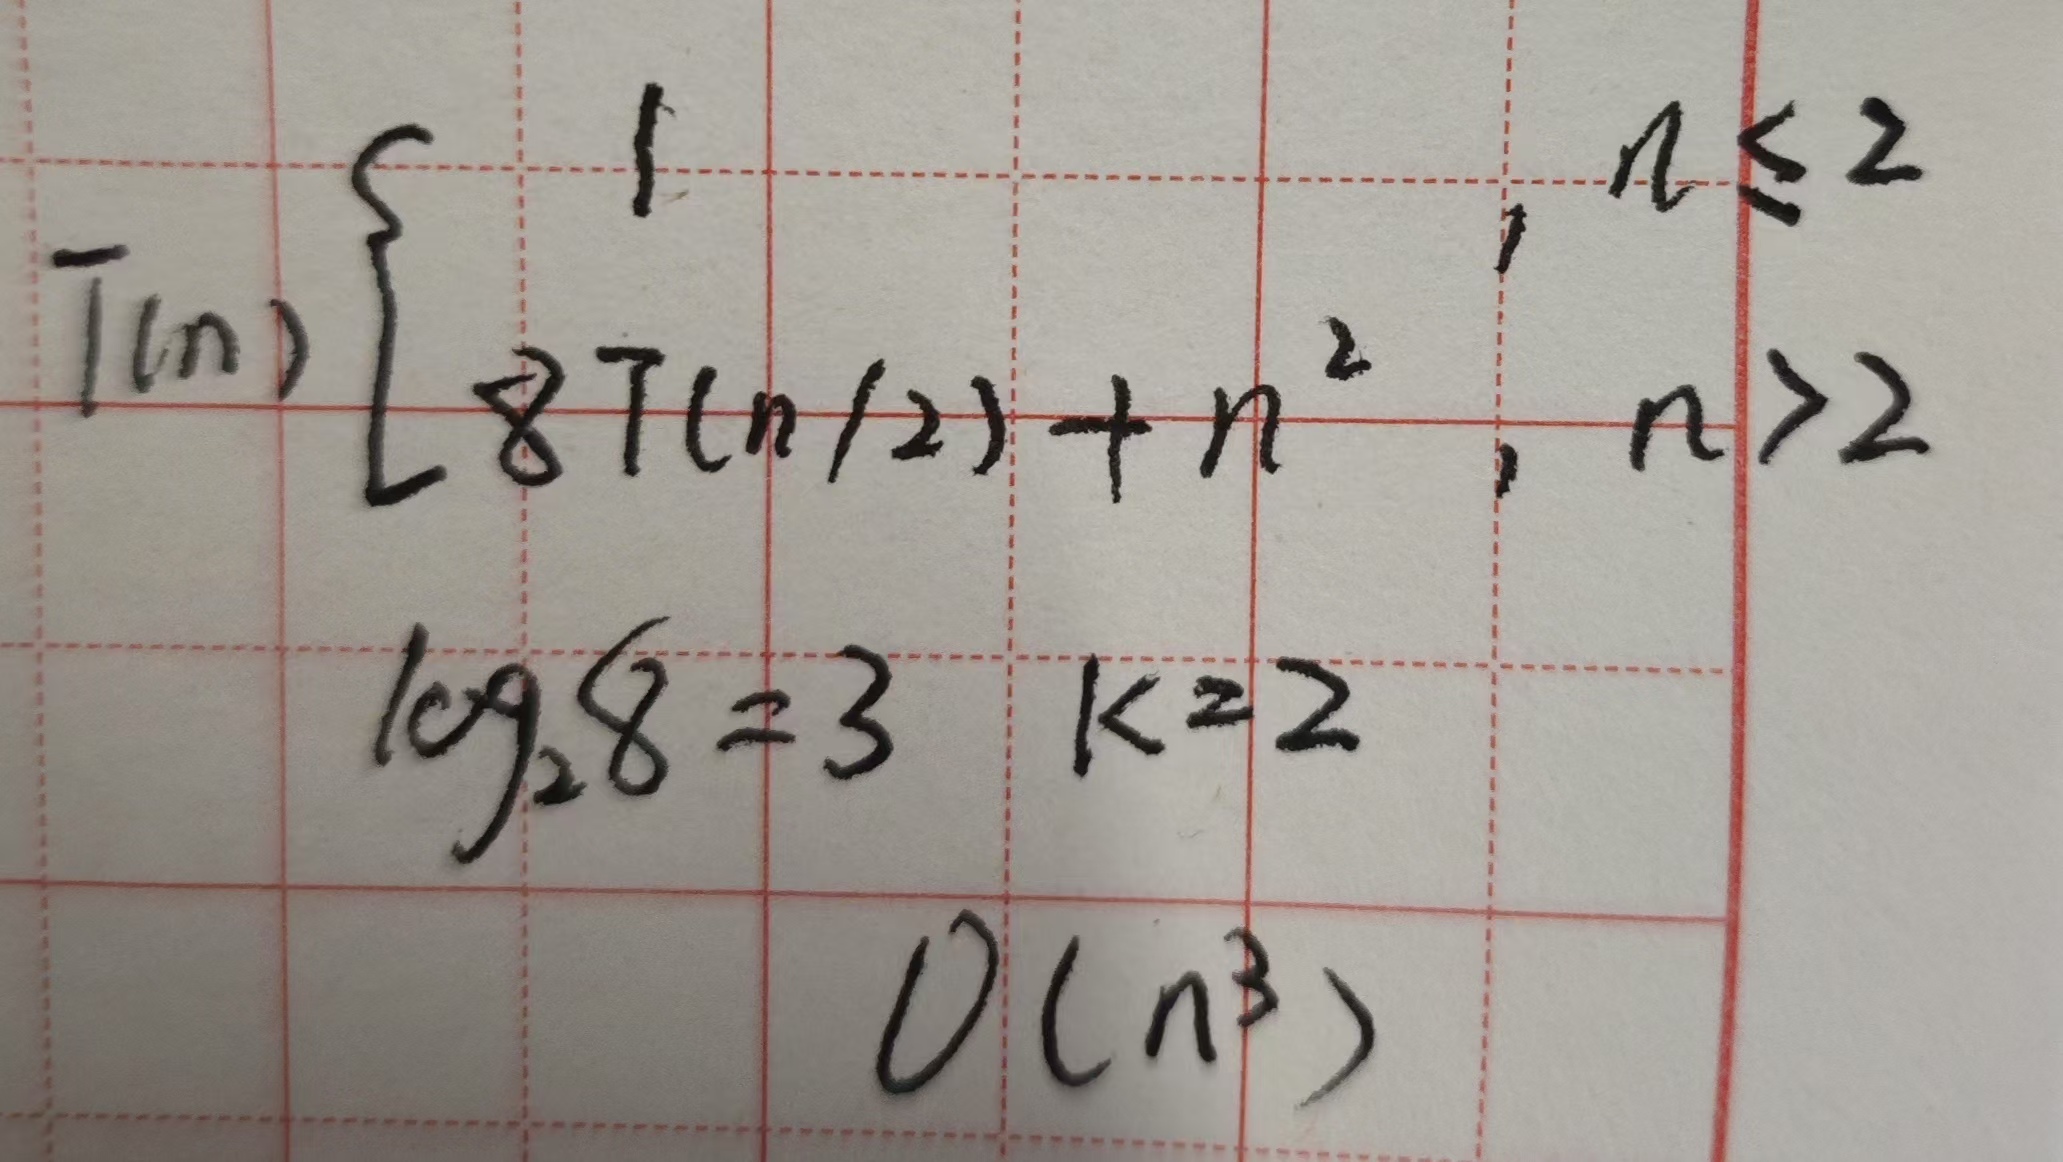 T(n) { 1 , n ≤ 2
8T(n/2) + n² , n > 2
log₂8 = 3 K = 2
O(n³)